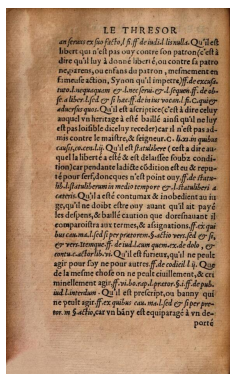 LE THRESOR
an seruus ex suo facto, ff. de iudi. li. nulla. Qu'il est
libert qui n'est pas ouy contre son patron (c'est à
dire qu'il luy a donné liberté, ou contre sa patro
ne, parens, ou enfans du patron, mesmement en
fameuse action, Sy non qu'il impetre) ff. de excusa.
tuto. l. nequaquam &
qu'il est ascriptice (c'est à dire celuy
auquel vn heritage à esté baillé ainsi qu'il ne luy
est pas loisible d'icely receder) car il n'est pas ad-
mis contre le maistre, & seigneur. C. li. xi. in quibus
causis, co. cen. li. ij. Qu'il est statulibere (cest a dire au-
quel la liberté a esté & est delassee soubz condi-
tion) car pendante ladicte cõdition est eu & repu-
té pour serf, doncques n'est point ouy. ff. de statu-
lib. l. statuliberum in medio tempore & l. statuliberi a
ceteris. Qu'il a esté contumax & inobedient au iu-
ge, qu'il ne doibt estre ouy auant qu'il ait payé
les despens, & baillé caution que doresnauant il
comparoistra aux termes, & assignations. ff. ex qui
bus cau. ma. l. sed si per pretorem. §. actio vero. sed & si,
& vers. itemque. ff. de iud. l. cum quem. ex. de dolo, &
contu. c. actor lib. vi. Qu'il est furieux, qu'il ne peult
agir pour soy ne pour autres. ff. de codicil. l. ij. Que
de la mesme chose on ne peult ciuillement, & cri
minellement agir. ff. vi. bo. rap. l. pretor. §. i. ff. de pub.
iud. l. interdum. Qu'il est prescript, ou banny qui
ne peult agir. ff. ex quibus cau. ma. l. sed & si per pre-
tor. in §. actio, car vn bany est equiparagé à vn de-
porté